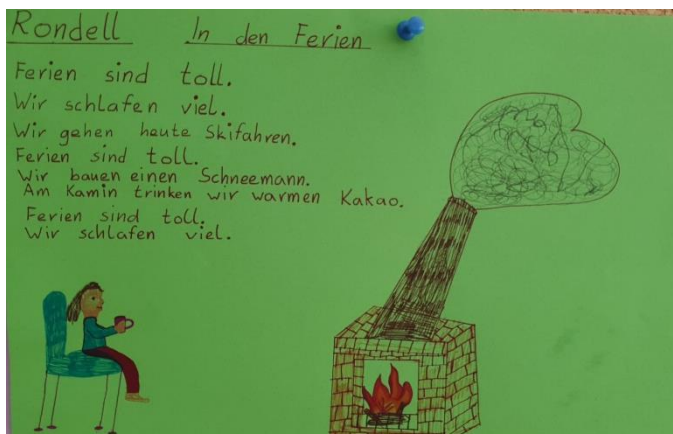 Rondell In den Ferien
Ferien sind toll.
Wir schlafen viel.
Wir gehen heute Skifahren.
Ferien sind toll.
Wir bauen einen Schneemann.
Am Kamin trinken wir warmen Kakao.
Ferien sind toll.
Wir schlafen viel.